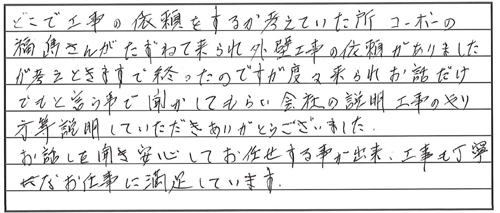 どこで工事の依頼をするか考えていた所 コーボーの
福島さんがたずねて来られ外壁工事の依頼がありました
が考えときますで終ったのですが度々来られお話だけ
でもと言う事で聞かしてもらい会社の説明工事のやり
方等説明していただきありがとうございました.
お話しを聞き安心してお任せする事が出来、工事も丁寧
なお仕事に満足しています.